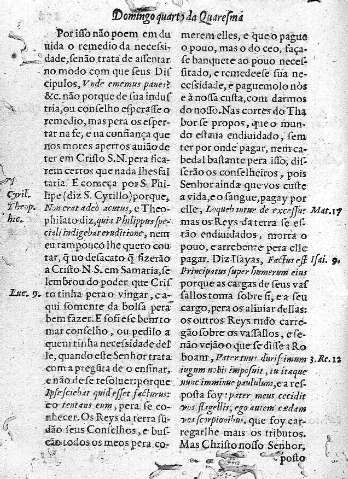 Domingo quarto da Quaresma
Por isso não poem em du
vida o remedio da necessi-
dade, senão trata de assentar
no modo com que seus Dis
cipulos, Vnde ememus panes?
&c. não porque de sua indus
tria, ou conselho esperasse o
remedio, mas pera os esper-
tar na fe, e na confiança que
nos mores apertos auião de
ter em Cristo S. N. pera fica
rem certos que nada lhes fal
taria. E começa por S. Phi-
lipe (diz S. Cyrillo) porque,
Non erat adeò acutus, e Theo-
philato diz, quia Philippus spe-
ciali indigebat eruditione, nem
eu tampouco lhe quero cou
tar, q̃ no desacato q̃ fizerão
a Cristo N. S. em Samaria, se
lembrou do poder que Cris
to tinha pera o vingar, e a-
qui somente da bolsa pera
bem fazer. E fosse se bem to
mar conselho, ou pedilo a
quem tinha necessidade del
le, quando este Senhor trata
com a pregũta de o ensinar,
e não de se resoluer: porque
Ipse sciebat quid esset facturus:
e o tentans eum, pera se co-
nhecer. Os Reys da terra su-
dão seus Conselhos, e bus-
cão todos os meos pera co-
Cyril.
Theop
hic.
Luc. 9.
merem elles, e que o pague
o pouo, mas o do ceo, faça-
se banquete ao pouo neces-
sitado, e remedeese sua ne-
cessidade, e paguemolo nòs
e à nossa custa, com darmos
do nosso. Nas cortes do Tha
bor se propos, que o mun-
do estaua endiuidado, sem
ter por onde pagar, nem ca-
bedal bastante pera isso, dis-
serão os conselheiros, pois
Senhor ainda que vos custe
a vida, e o sangue, pagay por
elle, Loquebantur de excessu:
mas os Reys da terra se es-
tão endiuidados, morra o
pouo, e arrebente pera elle
pagar. Diz Isayas, Factus est
Principatus super humerum eius
porque as cargas de seus vas
sallos toma sobre si, e a seu
cargo, pera os aliuiar dellas:
os outros Reys tudo carre-
gão sobre os vassallos, e se-
não vejão o que se disse a Ro
boam, Pater tuus durissimum
iugum nobis imposuit, tu itaque
nunc imminue paululum, e a res-
posta foy: pater meus cecidit
vos flagellis, ego autem cædam
vos scorpionibus, que foy car-
regarlhe mais os tributos.
Mas Christo nosso Senhor,
posto
Mat. 17
Isai. 9.
3. Re. 12